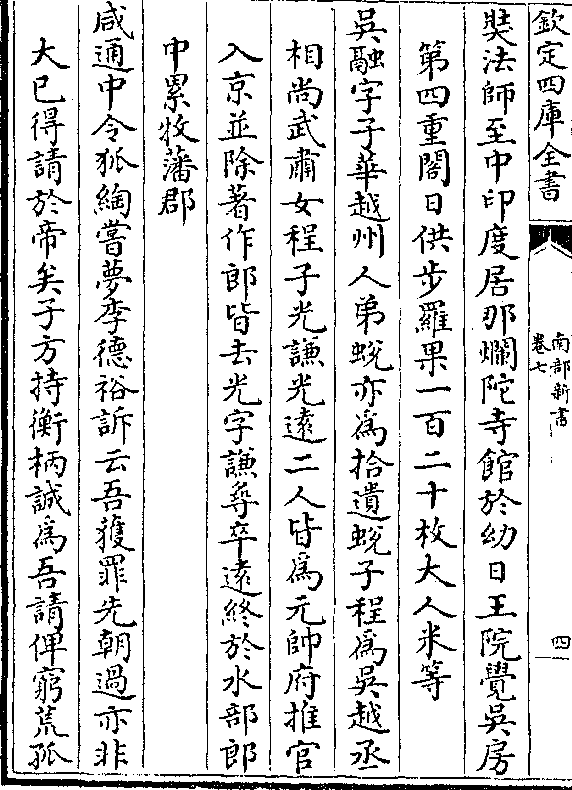 欽定四庫全書
南部新書
卷七
四
奘法師至中印度居那爛陀寺館於幼日王院覺吳房
第四重閣日供步羅果一百二十枚大人米等
吳融字子華越州人弟蛻亦爲拾遺蛻子程爲吳越丞
相尚武肅女程子光謙光遠二人皆爲元帥府推官
入京並除著作郎皆去光字謙尋卒遠終於水部郎
中累牧藩郡
咸通中令狐綯嘗夢李德裕訴云吾獲罪先朝過亦非
大已得請於帝矣子方持衡柄誠爲吾請俾窮荒孤